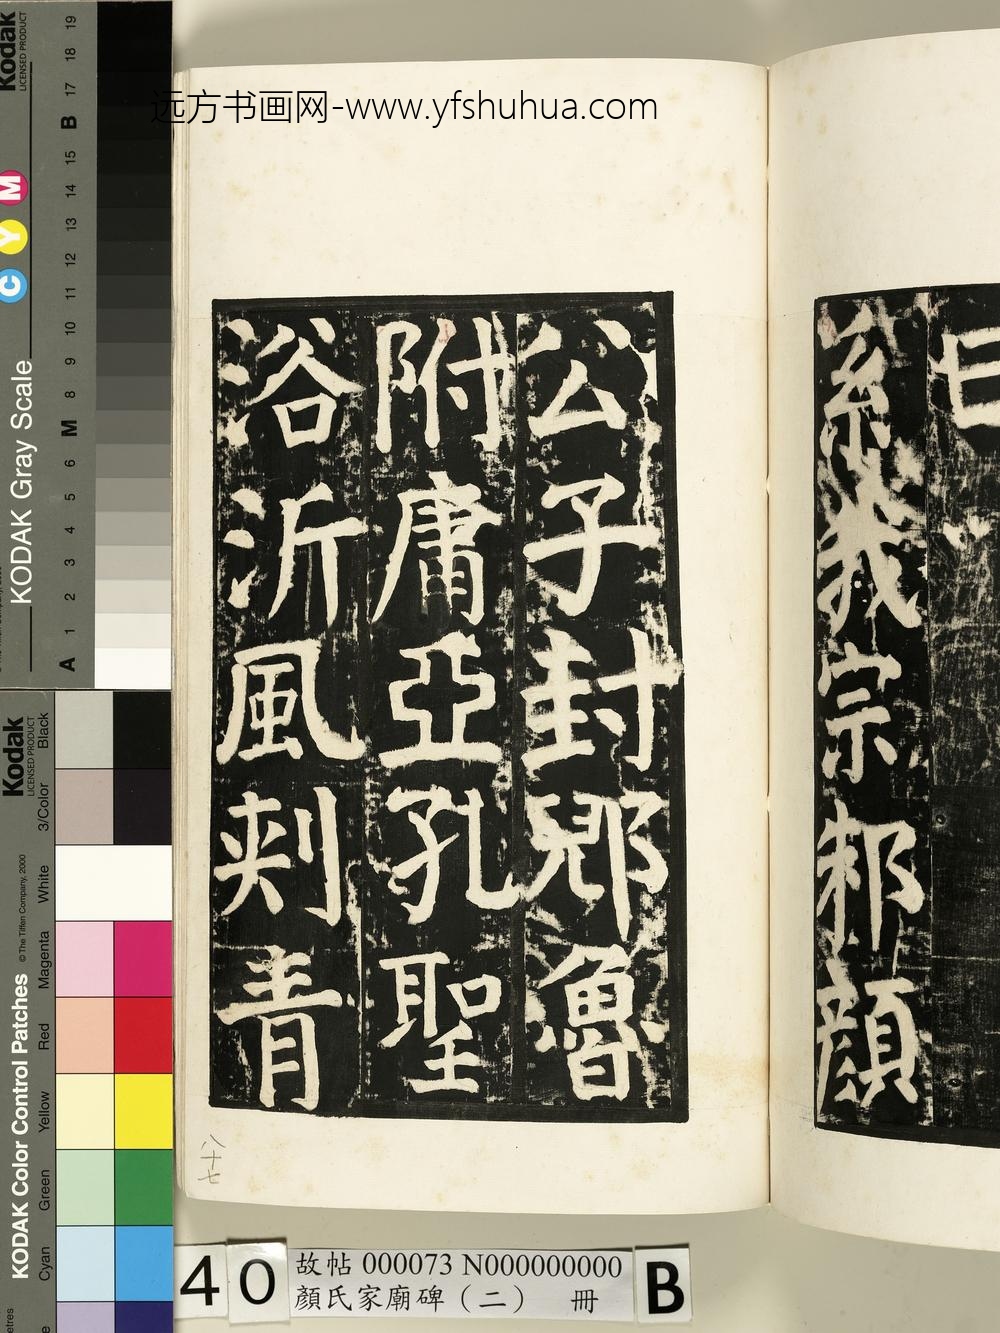 远方书画网-www.yfshuhua.com
曰
系我宗邾顏
公子封郳魯
附庸亞孔聖
浴沂風剌青
八十七
40
故帖 000073 N000000000
顏氏家廟碑（二） 冊
B
Kodak
LICENSED PRODUCT
KODAK Gray Scale
C Y M
A 1 2 3 4 5 6 M 8 9 10 11 12 13 14 15 B 17 18 19
Kodak
LICENSED PRODUCT
KODAK Color Control Patches
© The Tiffen Company, 2000
Black
3/Color
White
Magenta
Red
Yellow
Green
Cyan